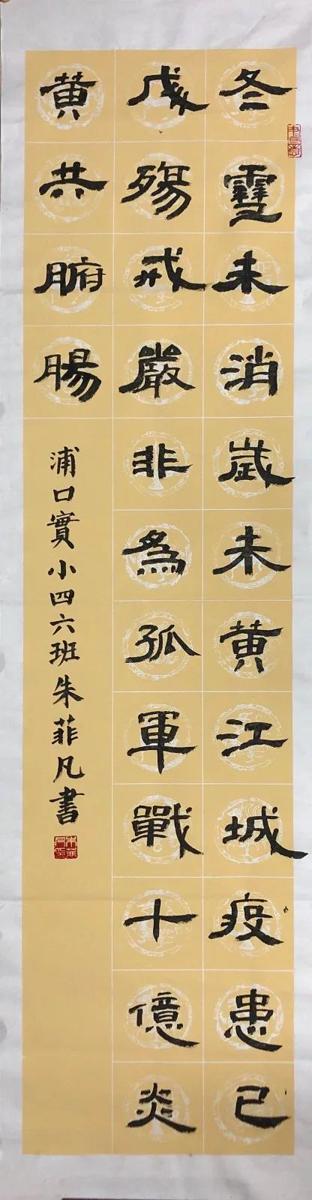 冬雪未消歲未黄江城疫患已
成殤戒嚴非為孤軍戰十億炎
黄共腑腸
浦口實小四六班朱菲凡書